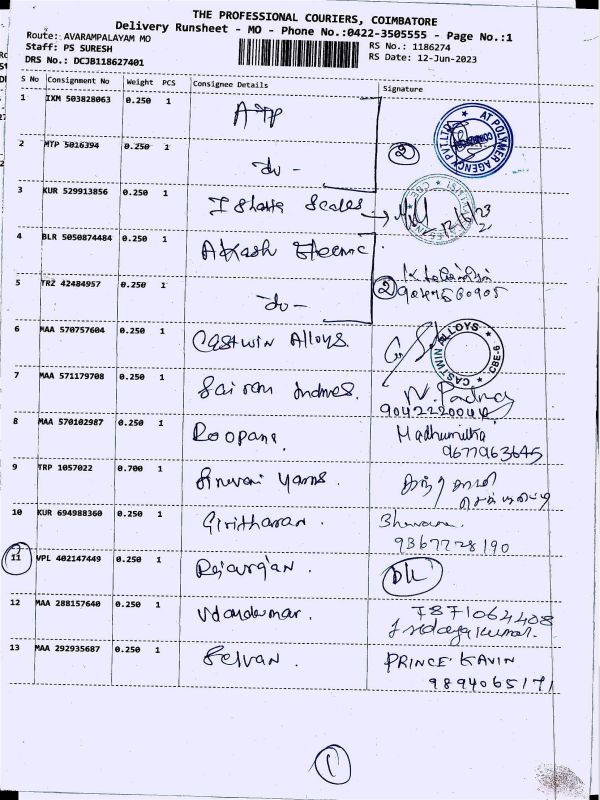 THE PROFESSIONAL COURIERS, COIMBATORE
Delivery Runsheet - MO - Phone No.:0422-3505555 - Page No.:1
Route: AVARAMPALAYAM MO
RS No.: 1186274
Staff: PS SURESH
RS Date: 12-Jun-2023
DRS No.: DCJB118627401
S No Consignment No Weight PCS Consignee Details Signature
1 IXM 503828063 0.250 1 ATP
AT POLYMER AGENCY PVT.LTD
2 MYP 5016394 0.250 1 - do - 2
3 KUR 529913856 0.250 1 Scales 12/6/23
4 BLR 5050874484 0.250 1 Akash
5 TRZ 42484957 0.250 1 - do - 2
6 MAA 570757604 0.250 1 Castwin Alloys.
CASTWIN ALLOYS CBE-6
7 MAA 571179708 0.250 1 Sai ram N. Padma
9042220044
8 MAA 570102987 0.250 1 Roopana Madhumitha
9677963645
9 TRP 1057022 0.700 1 Yarns
10 KUR 694988360 0.250 1 Giritharan. Bhuvana
9367228190
11 VPL 402147449 0.250 1
12 MAA 288157640 0.250 1 7871064408
13 MAA 292935687 0.250 1 Selvan. PRINCE KAVIN
9894065171
1